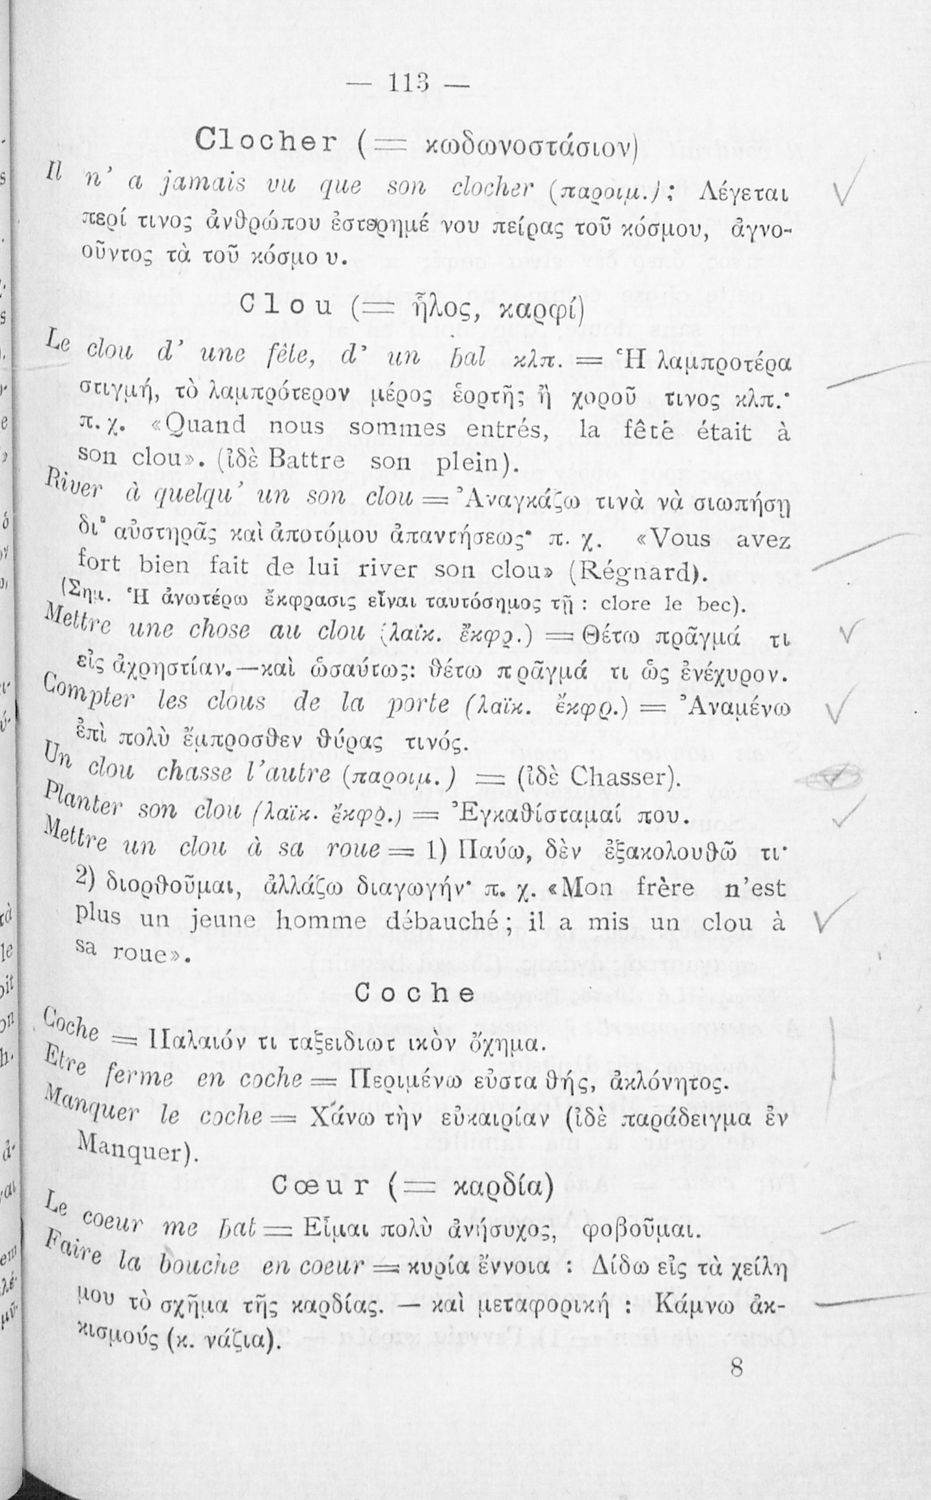 — 113 —
Clocher (= κωδωνοστάσιον)
Il n' a jamais vu que son clocher (παροιμ.): Λέγεται
περί τινος ἀνθρώπου ἐστερημένου πείρας τοῦ κόσμου, ἀγνο-
οῦντος τὰ τοῦ κόσμου.
Clou (= ἧλος, καρφί)
Le clou d' une fête, d' un bal κλπ. = Ἡ λαμπροτέρα
στιγμή, τὸ λαμπρότερον μέρος ἑορτῆς ἢ χοροῦ τινος κλπ.·
π. χ. «Quand nous sommes entrés, la fêtê était à
son clou». (ἰδὲ Battre son plein).
River à quelqu' un son clou = Ἀναγκάζω τινὰ νὰ σιωπήσῃ
δι' αὐστηρᾶς καὶ ἀποτόμου ἀπαντήσεως· π. χ. «Vous avez
fort bien fait de lui river son clou» (Régnard).
(Σημ. Ἡ ἀνωτέρω ἔκφρασις εἶναι ταυτόσημος τῇ : clore le bec).
Mettre une chose au clou (λαϊκ. ἔκφρ.) = Θέτω πρᾶγμά τι
εἰς ἀχρηστίαν.—καὶ ὡσαύτως: θέτω πρᾶγμά τι ὡς ἐνέχυρον.
Compter les clous de la porte (λαϊκ. ἔκφρ.) = Ἀναμένω
ἐπὶ πολὺ ἔμπροσθεν θύρας τινός.
Un clou chasse l'autre (παροιμ.) = (ἰδὲ Chasser).
Planter son clou (λαϊκ. ἔκφρ.) = Ἐγκαθίσταμαί που.
Mettre un clou à sa roue = 1) Παύω, δὲν ἐξακολουθῶ τι·
2) διορθοῦμαι, ἀλλάζω διαγωγήν· π. χ. «Mon frère n'est
plus un jeune homme débauché; il a mis un clou à
sa roue».
Coche
Coche = Παλαιόν τι ταξειδιωτικὸν ὄχημα.
Etre ferme en coche = Περιμένω εὐσταθής, ἀκλόνητος.
Manquer le coche = Χάνω τὴν εὐκαιρίαν (ἰδὲ παράδειγμα ἐν
Manquer).
Cœur (= καρδία)
Le coeur me bat = Εἶμαι πολὺ ἀνήσυχος, φοβοῦμαι.
Faire la bouche en coeur = κυρία ἔννοια : Δίδω εἰς τὰ χείλη
μου τὸ σχῆμα τῆς καρδίας. — καὶ μεταφορική : Κάμνω ἀκ-
κισμούς (κ. νάζια).
8